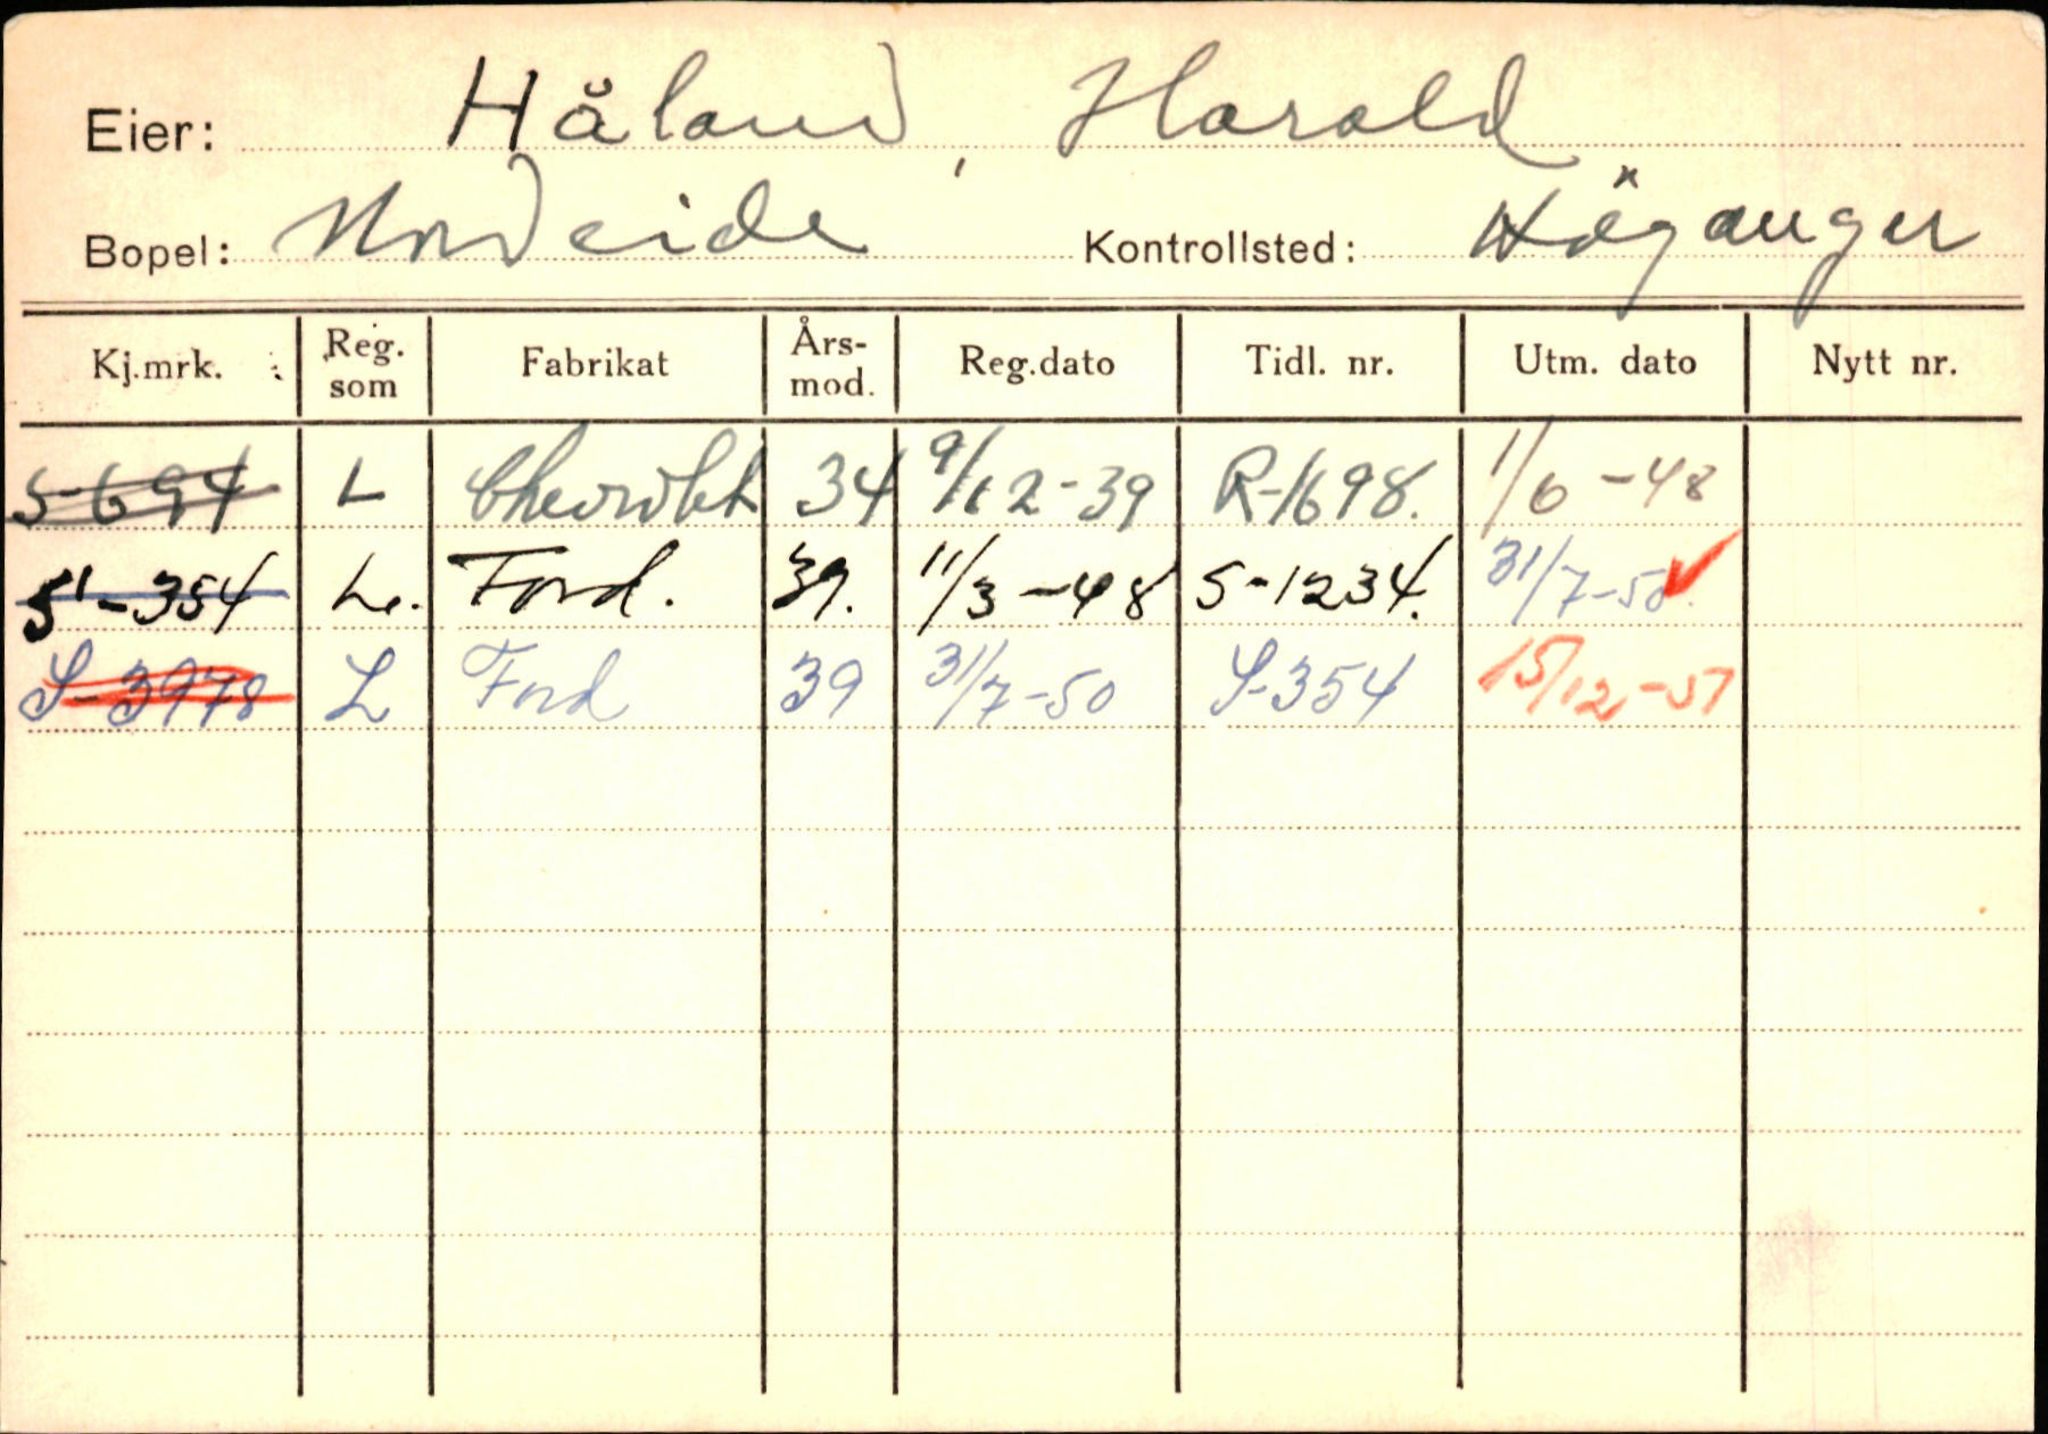 Eier: Håland, Harald
Bopel: Nordeide Kontrollsted: Höyanger
Kj.mrk. Reg. som Fabrikat Års-mod. Reg.dato Tidl. nr. Utm. dato Nytt nr.
S-694 L Chevrolet 34 9/12-39 R-1698. 1/6-48
S-354 L. Ford. 39. 11/3-48 S-1234. 31/7-50.
S-3978 L Ford 39 31/7-50 S-354 15/12-51